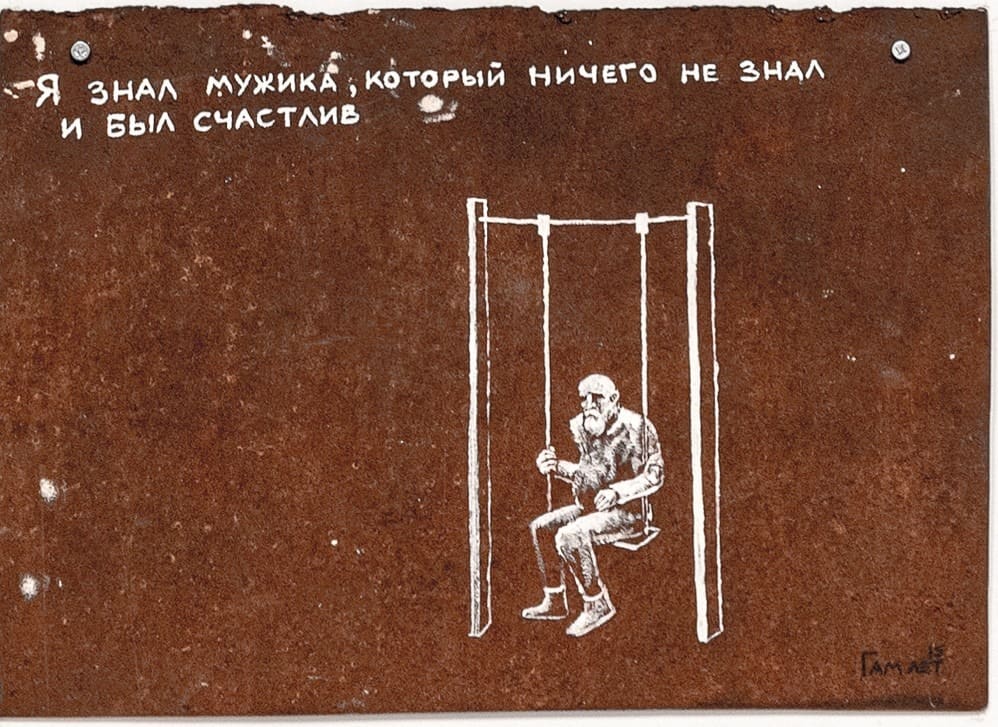 - Я ЗНАЛ МУЖИКА, КОТОРЫЙ НИЧЕГО НЕ ЗНАЛ
И БЫЛ СЧАСТЛИВ
15
ГАМЛЕТ